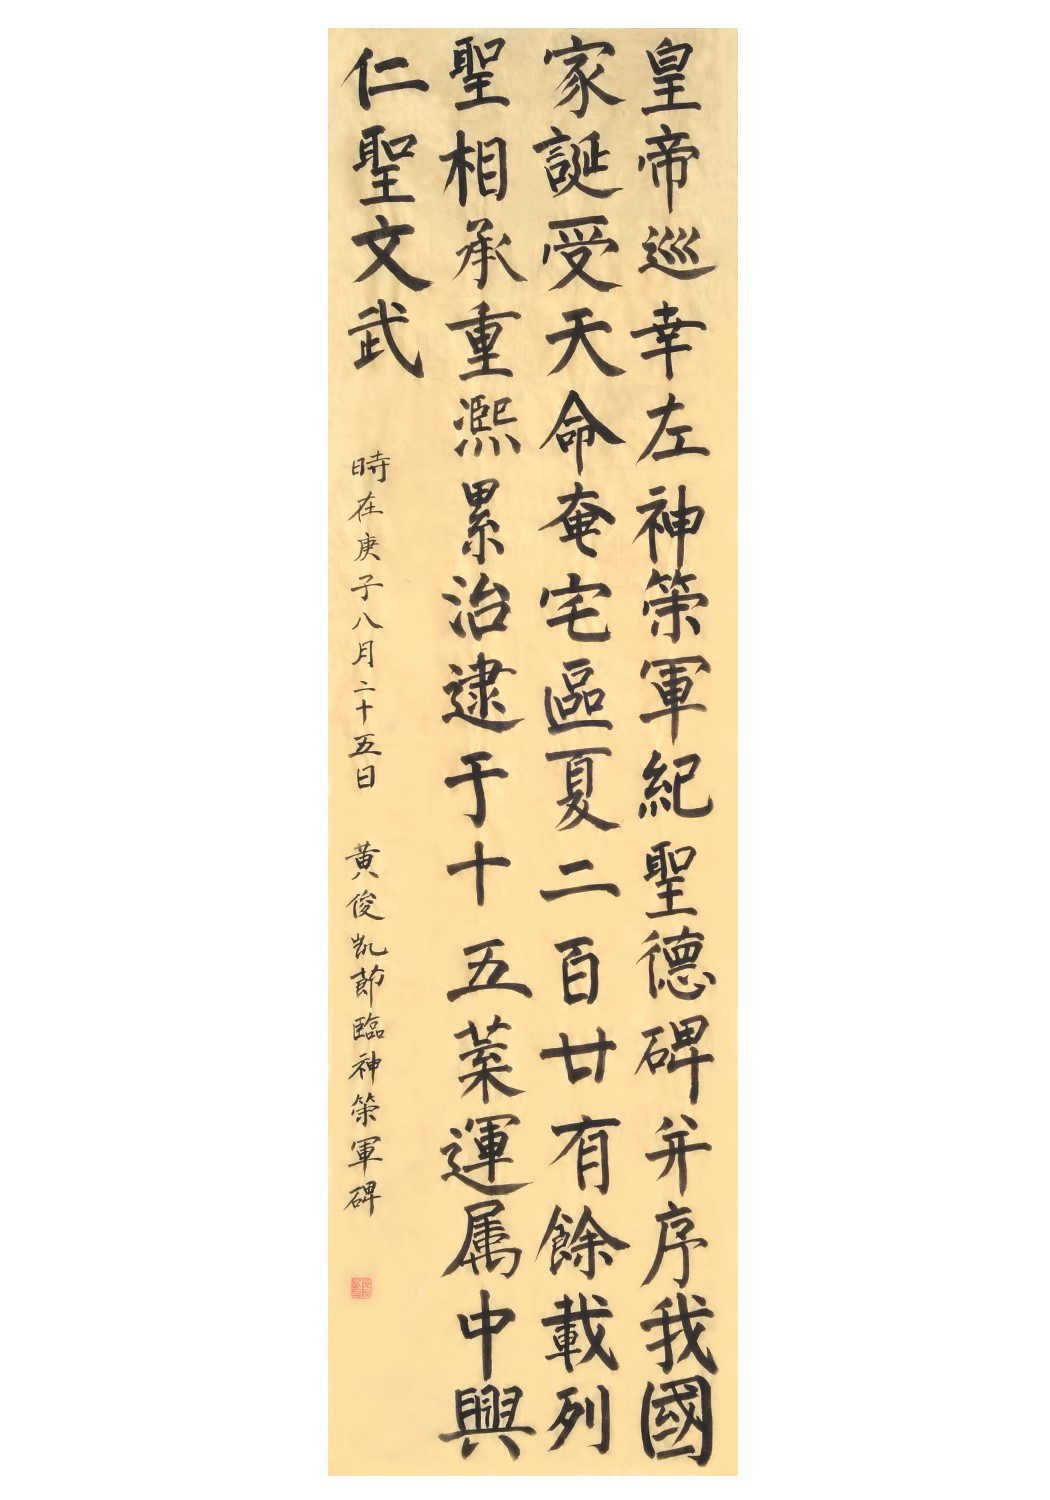 皇帝巡幸左神策軍紀聖德碑并序我國
家誕受天命奄宅區夏二百廿有餘載列
聖相承重熙累洽逮于十五葉運属中興
仁聖文武
時在庚子八月二十五日 黄俊凯節臨神策軍碑